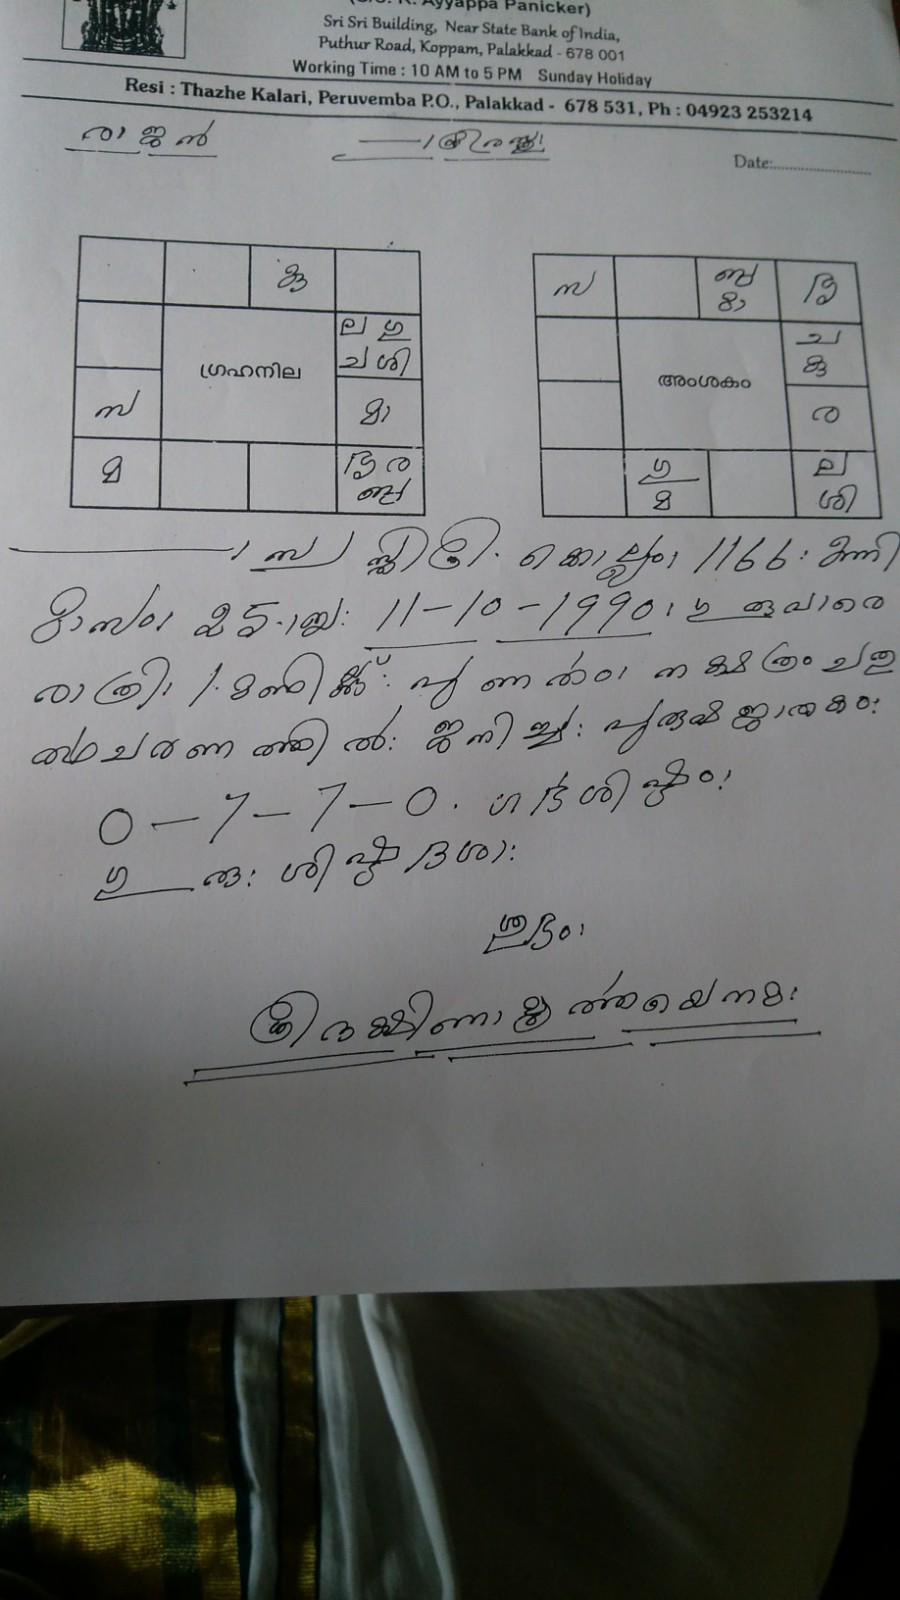 (S/o. K. Ayyappa Panicker)
Sri Sri Building, Near State Bank of India,
Puthur Road, Koppam, Palakkad - 678 001
Working Time : 10 AM to 5 PM Sunday Holiday
Resi : Thazhe Kalari, Peruvemba P.O., Palakkad - 678 531, Ph : 04923 253214
രാജൻ
Date:
കു
ല ഗു
ച ശി
ഗ്രഹനില
സ
മാ
മ
ര
ബു
സ
ബു
മാ
ച
കു
അംശകം
ര
ഗു
മ
ല
ശി
സ്വസ്തിശ്രീ. കൊല്ലം 1166: കന്നി
മാസം 25-ാം 11-10-1990
രാത്രി 1 മണിക്ക്: പുണർതം നക്ഷത്രം ചതു
ർത്ഥചരണത്തിൽ: ജനിച്ച: പുരുഷജാതകം:
0-7-7-0.
ഗുരു: ശിഷ്ട ദശാ:
ശുഭം:
ശ്രീ ദക്ഷിണാമൂർത്തയെ നമ: